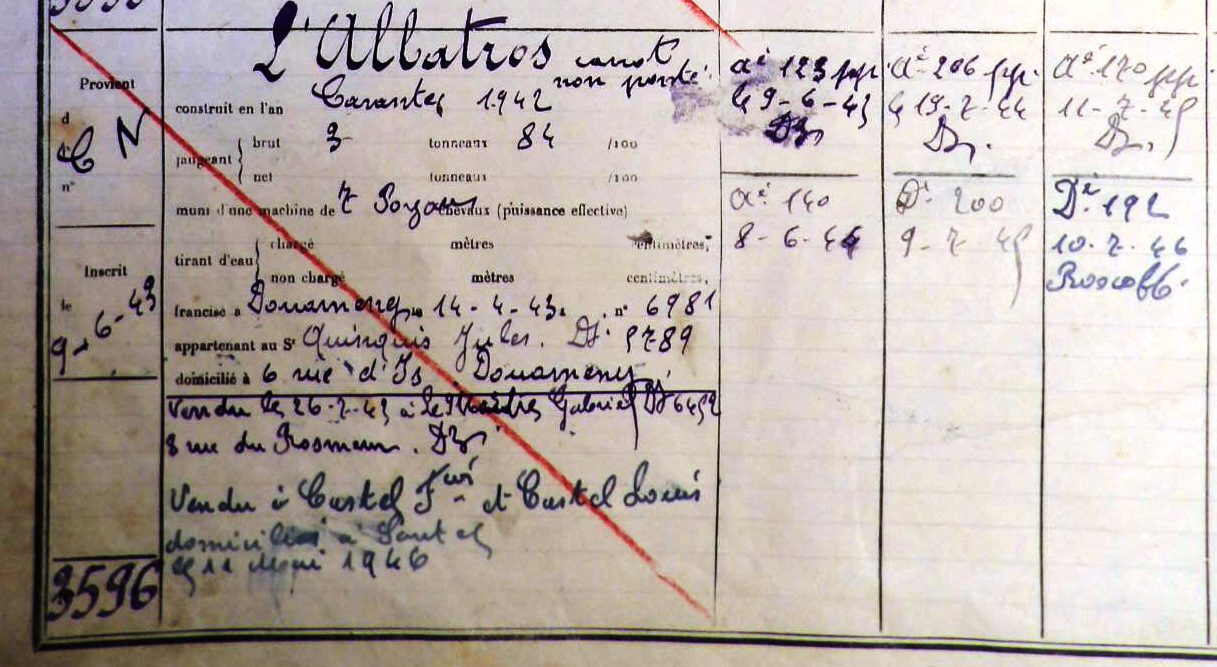 Provient
d
C N
n°
Inscrit
le
9-6-43
3596
L'Albatros canot
non ponté
construit en l'an Carantec 1942
jaugeant { brut 3 tonneaux 84 /100
net tonneaux /100
muni d'une machine de 7 chevaux (puissance effective)
tirant d'eau { chargé mètres centimètres,
non chargé mètres centimètres,
francisé à Douarnenez le 14-4-43. n° 6981
appartenant au Sr Quinquis Jules. Dz 5789
domicilié à 6 rue d'Is Douarnenez
Vendu le 26-7-43 à Gabriel Dz 6452
8 rue du Rosmeur. Dz
Vendu à Castel Fçois et Castel Louis
domiciliés à Santec
le 11 Mai 1946
Aé 123
le 9-6-43
Dz
Aé 140
8-6-44
Aé 206
le 19-7-44
Dz.
Dé 200
9-7-45
Aé 170
11-7-45
Dz.
Dé 192
10-7-46
Roscoff.